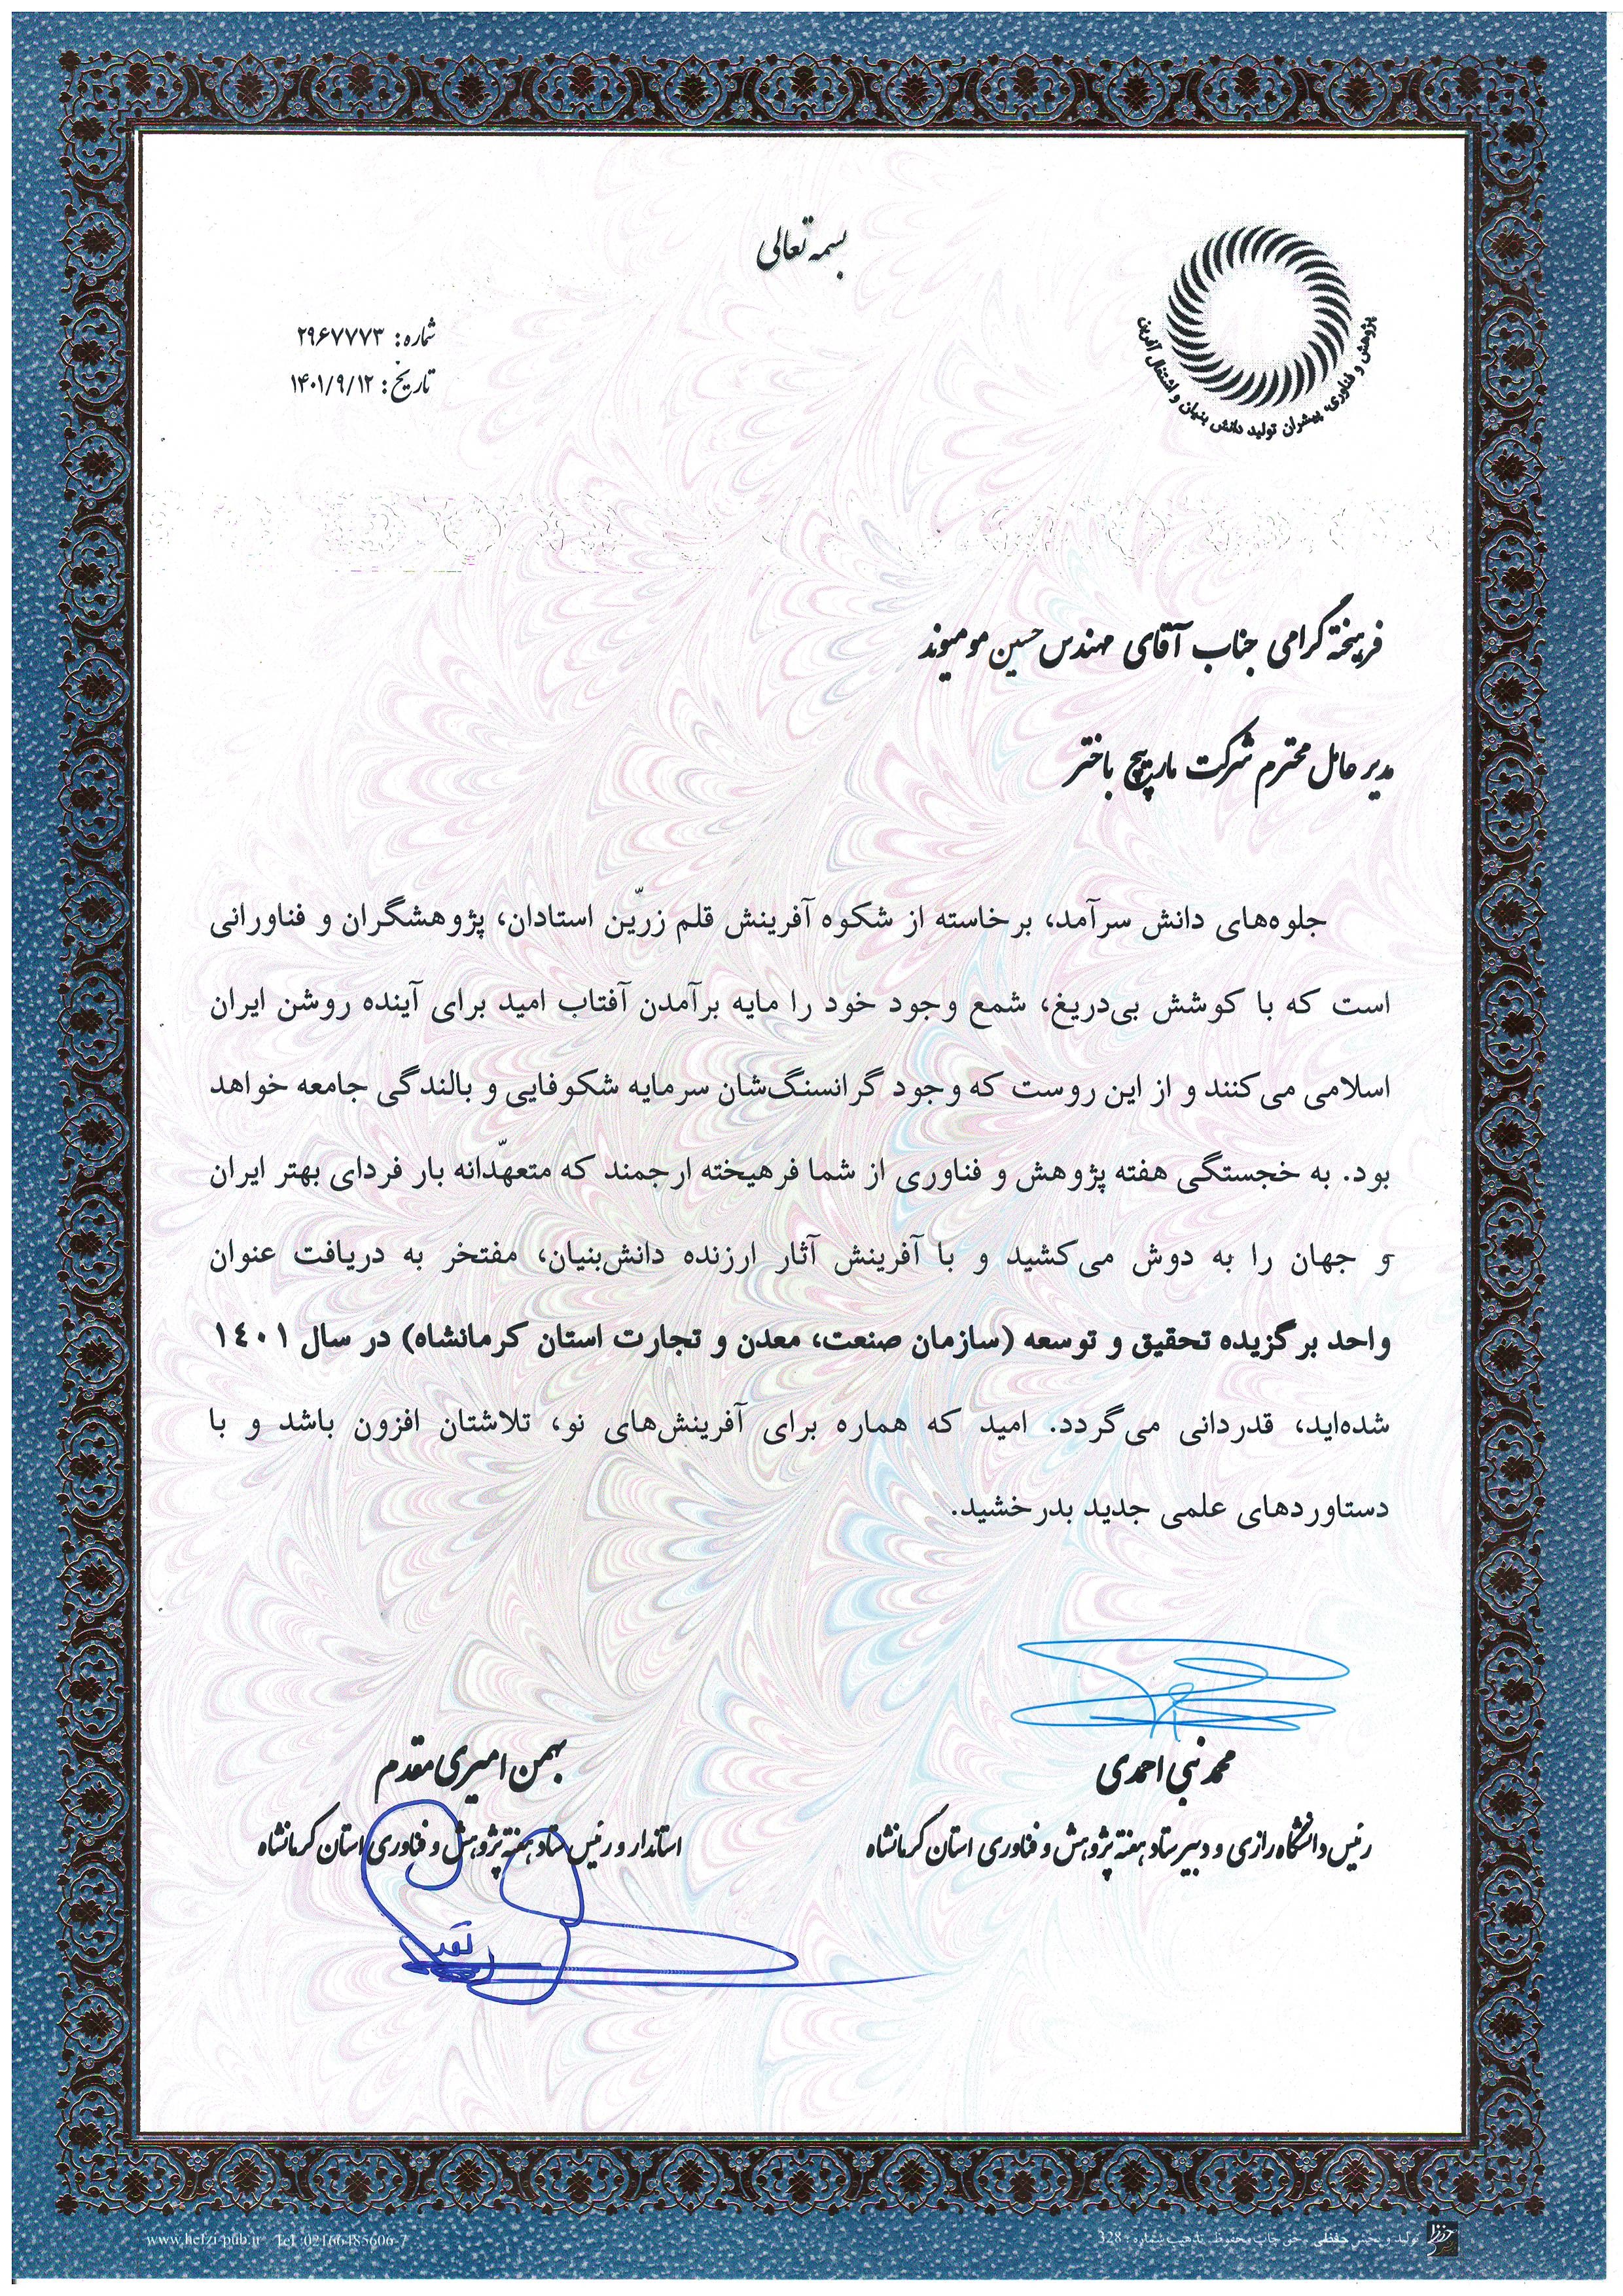 بسمه تعالی
پژوهش و فناوری، پیشران تولید دانش بنیان و اشتغال آفرین
شماره: ۲۹۶۷۷۷۳
تاریخ: ۱۴۰۱/۹/۱۲
فرهیخته گرامی جناب آقای مهندس حسین مومیوند
مدیر عامل محترم شرکت مارپیچ باختر
جلوه‌های دانش سرآمد، برخاسته از شکوه آفرینش قلم زرّین استادان، پژوهشگران و فناورانی
است که با کوشش بی‌دریغ، شمع وجود خود را مایه برآمدن آفتاب امید برای آینده روشن ایران
اسلامی می‌کنند و از این روست که وجود گرانسنگ‌شان سرمایه شکوفایی و بالندگی جامعه خواهد
بود. به خجستگی هفته پژوهش و فناوری از شما فرهیخته ارجمند که متعهّدانه بار فردای بهتر ایران
و جهان را به دوش می‌کشید و با آفرینش آثار ارزنده دانش‌بنیان، مفتخر به دریافت عنوان
واحد برگزیده تحقیق و توسعه (سازمان صنعت، معدن و تجارت استان کرمانشاه) در سال ۱٤۰۱
شده‌اید، قدردانی می‌گردد. امید که هماره برای آفرینش‌های نو، تلاشتان افزون باشد و با
دستاوردهای علمی جدید بدرخشید.
محمد نبی احمدی
رئیس دانشگاه رازی و دبیر ستاد هفته پژوهش و فناوری استان کرمانشاه
بهمن امیری مقدم
استاندار و رئیس ستاد هفته پژوهش و فناوری استان کرمانشاه
www.hefzi-pub.ir Tel :02166485606-7
تولید و پخش حفظی - حق چاپ محفوظ. تذهیب شماره : 328